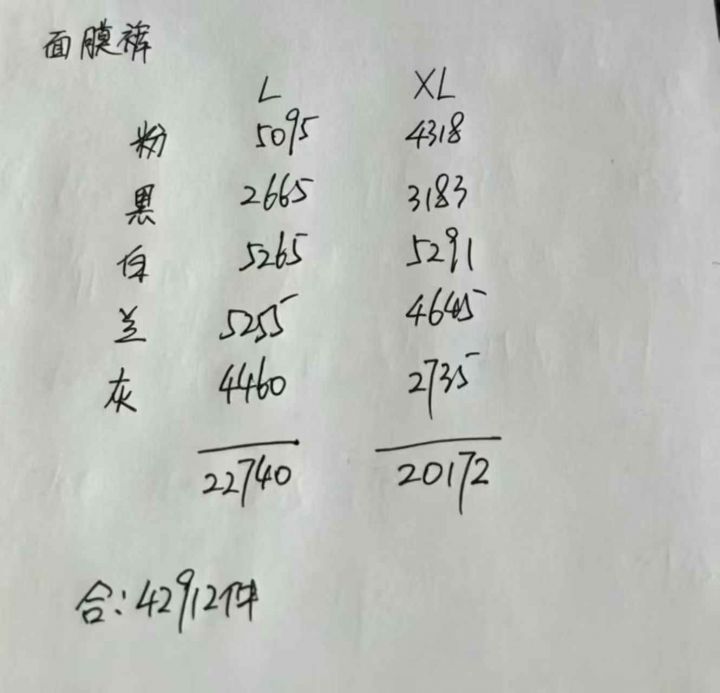 面膜裤
L XL
粉 5095 4318
黑 2665 3183
白 5265 5291
兰 5255 4645
灰 4460 2735
22740 20172
合:42912件